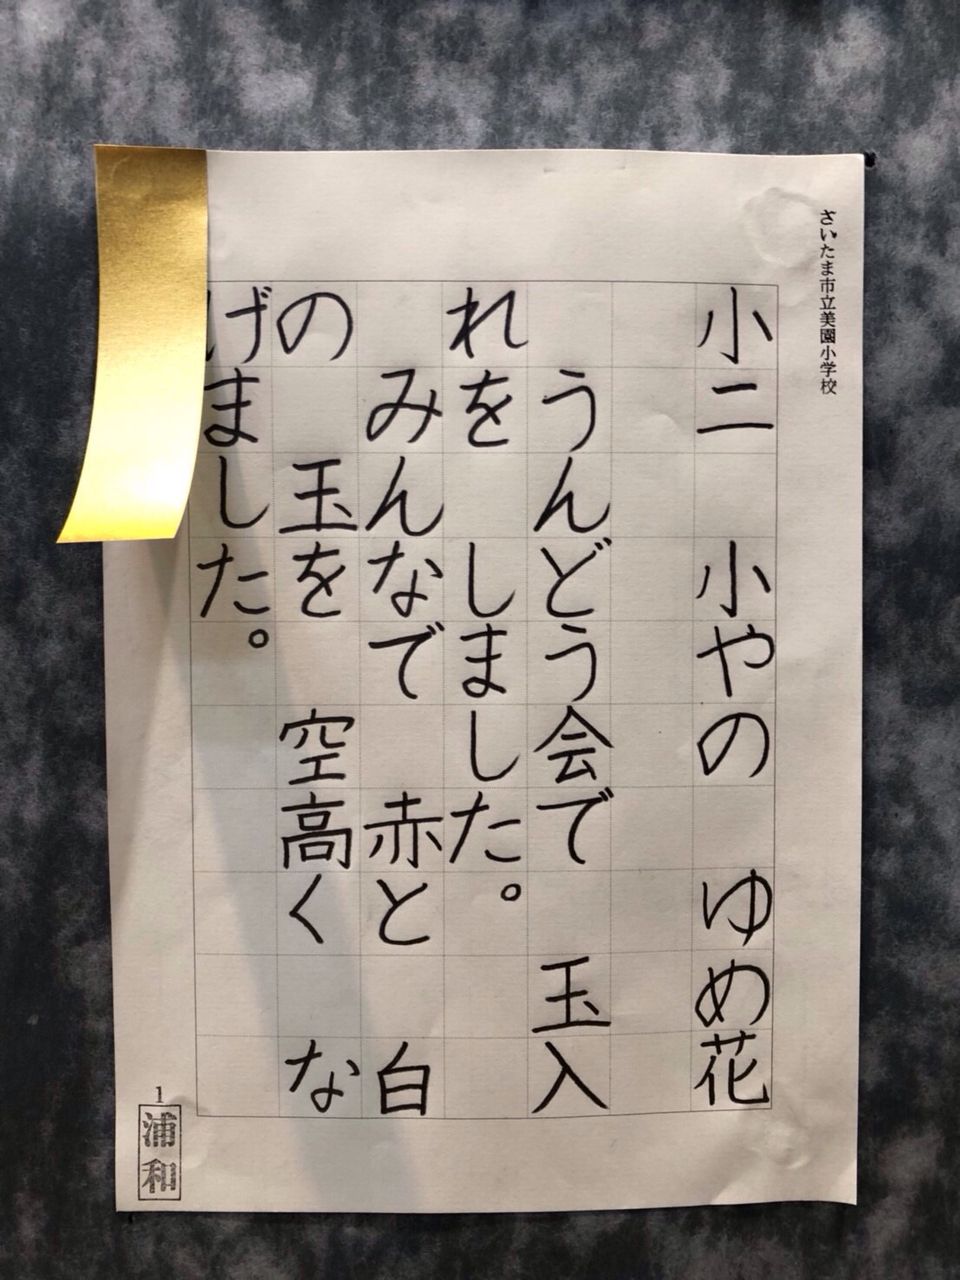 さいたま市立美園小学校
小二　小やの　ゆめ花
うんどう会で　玉入
れを　しました。
みんなで　赤と　白
の　玉を　空高く　な
げました。
1
浦和